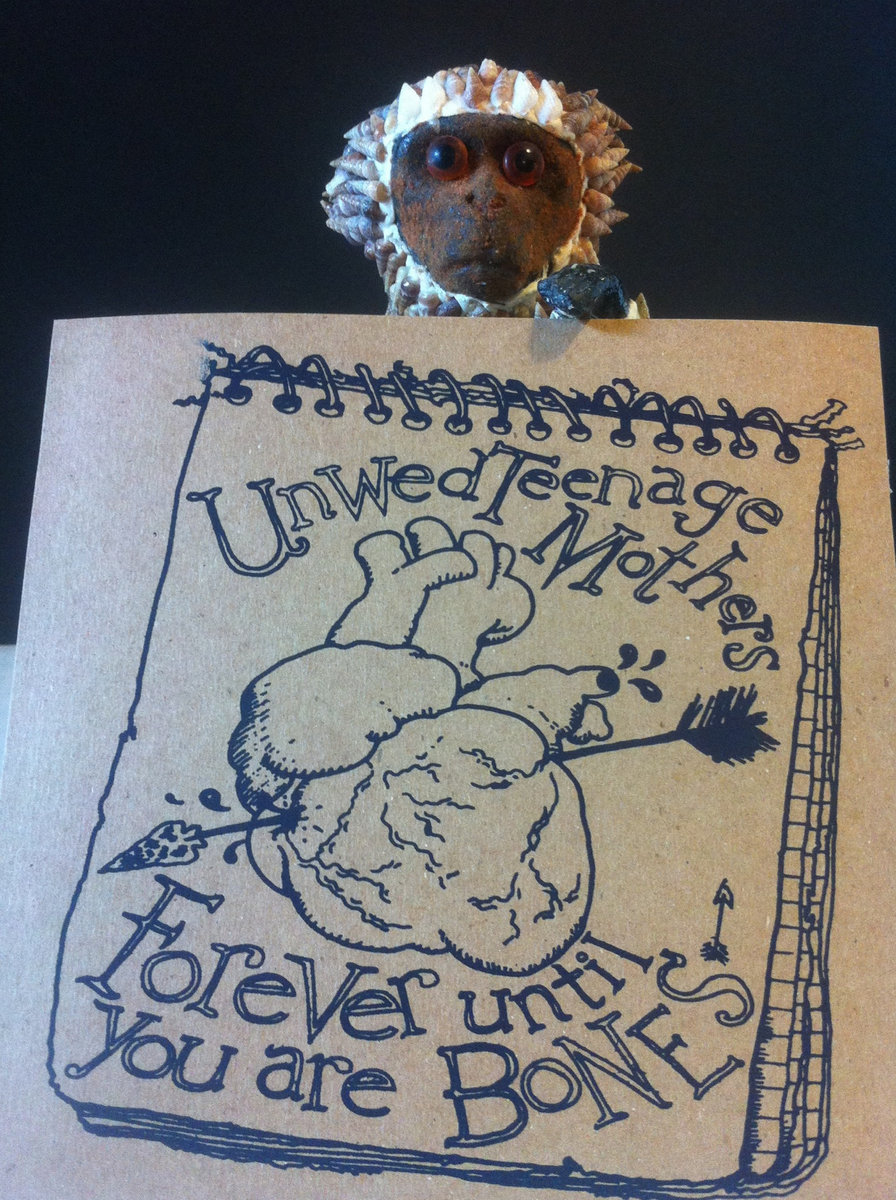 Unwed Teenage
Mothers
Forever until
you are BONES